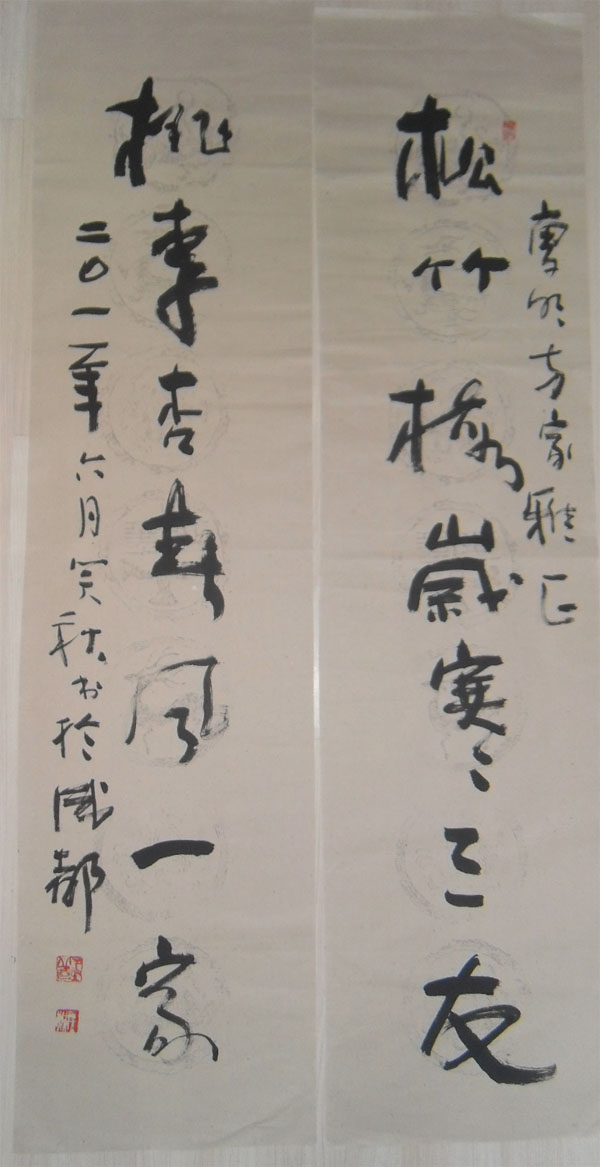 明方家雅正
松竹梅歲寒三友
桃李杏春风一家
二0一一年六月秋书於成都